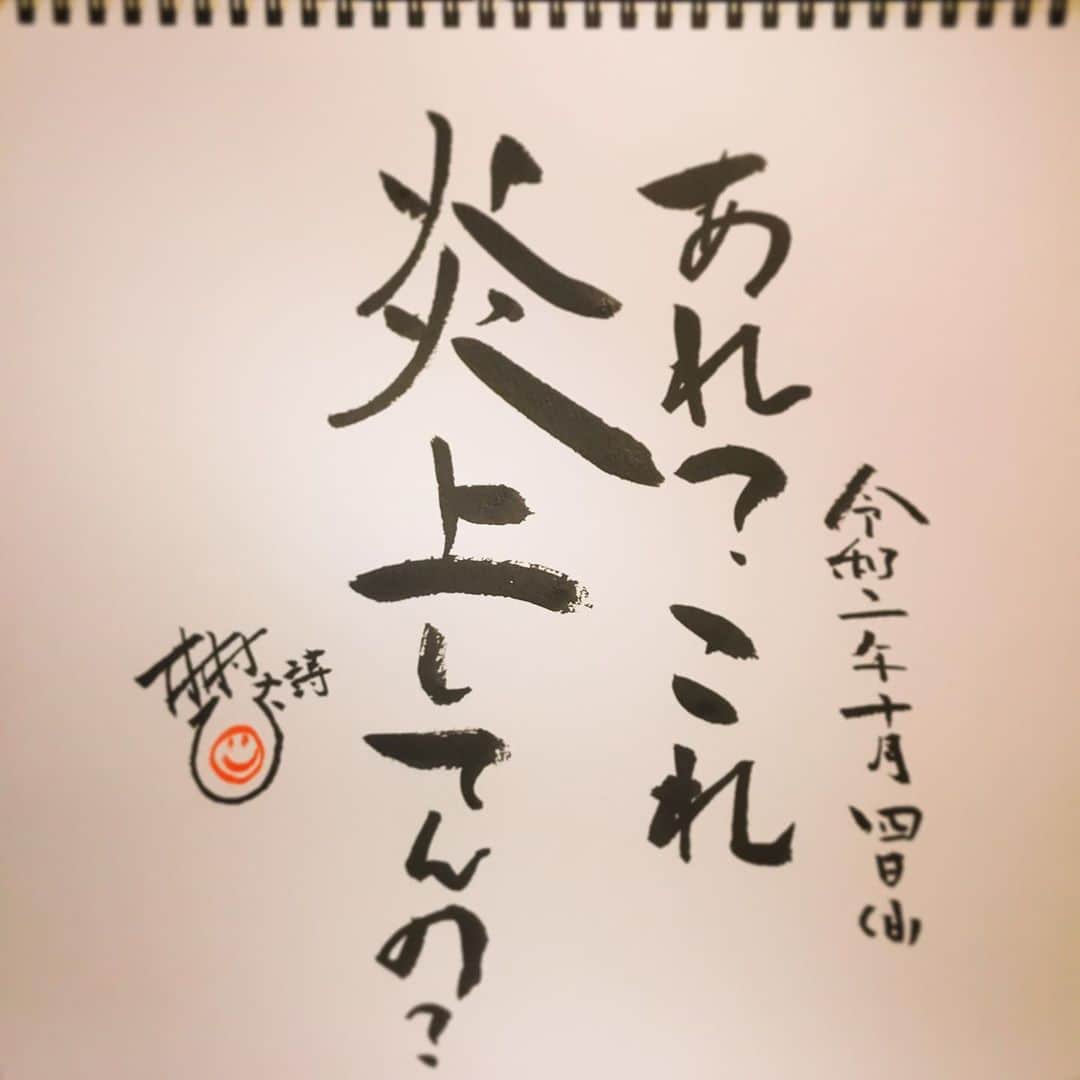 令和二年十月四日(日)
あれ?これ
炎上してんの?